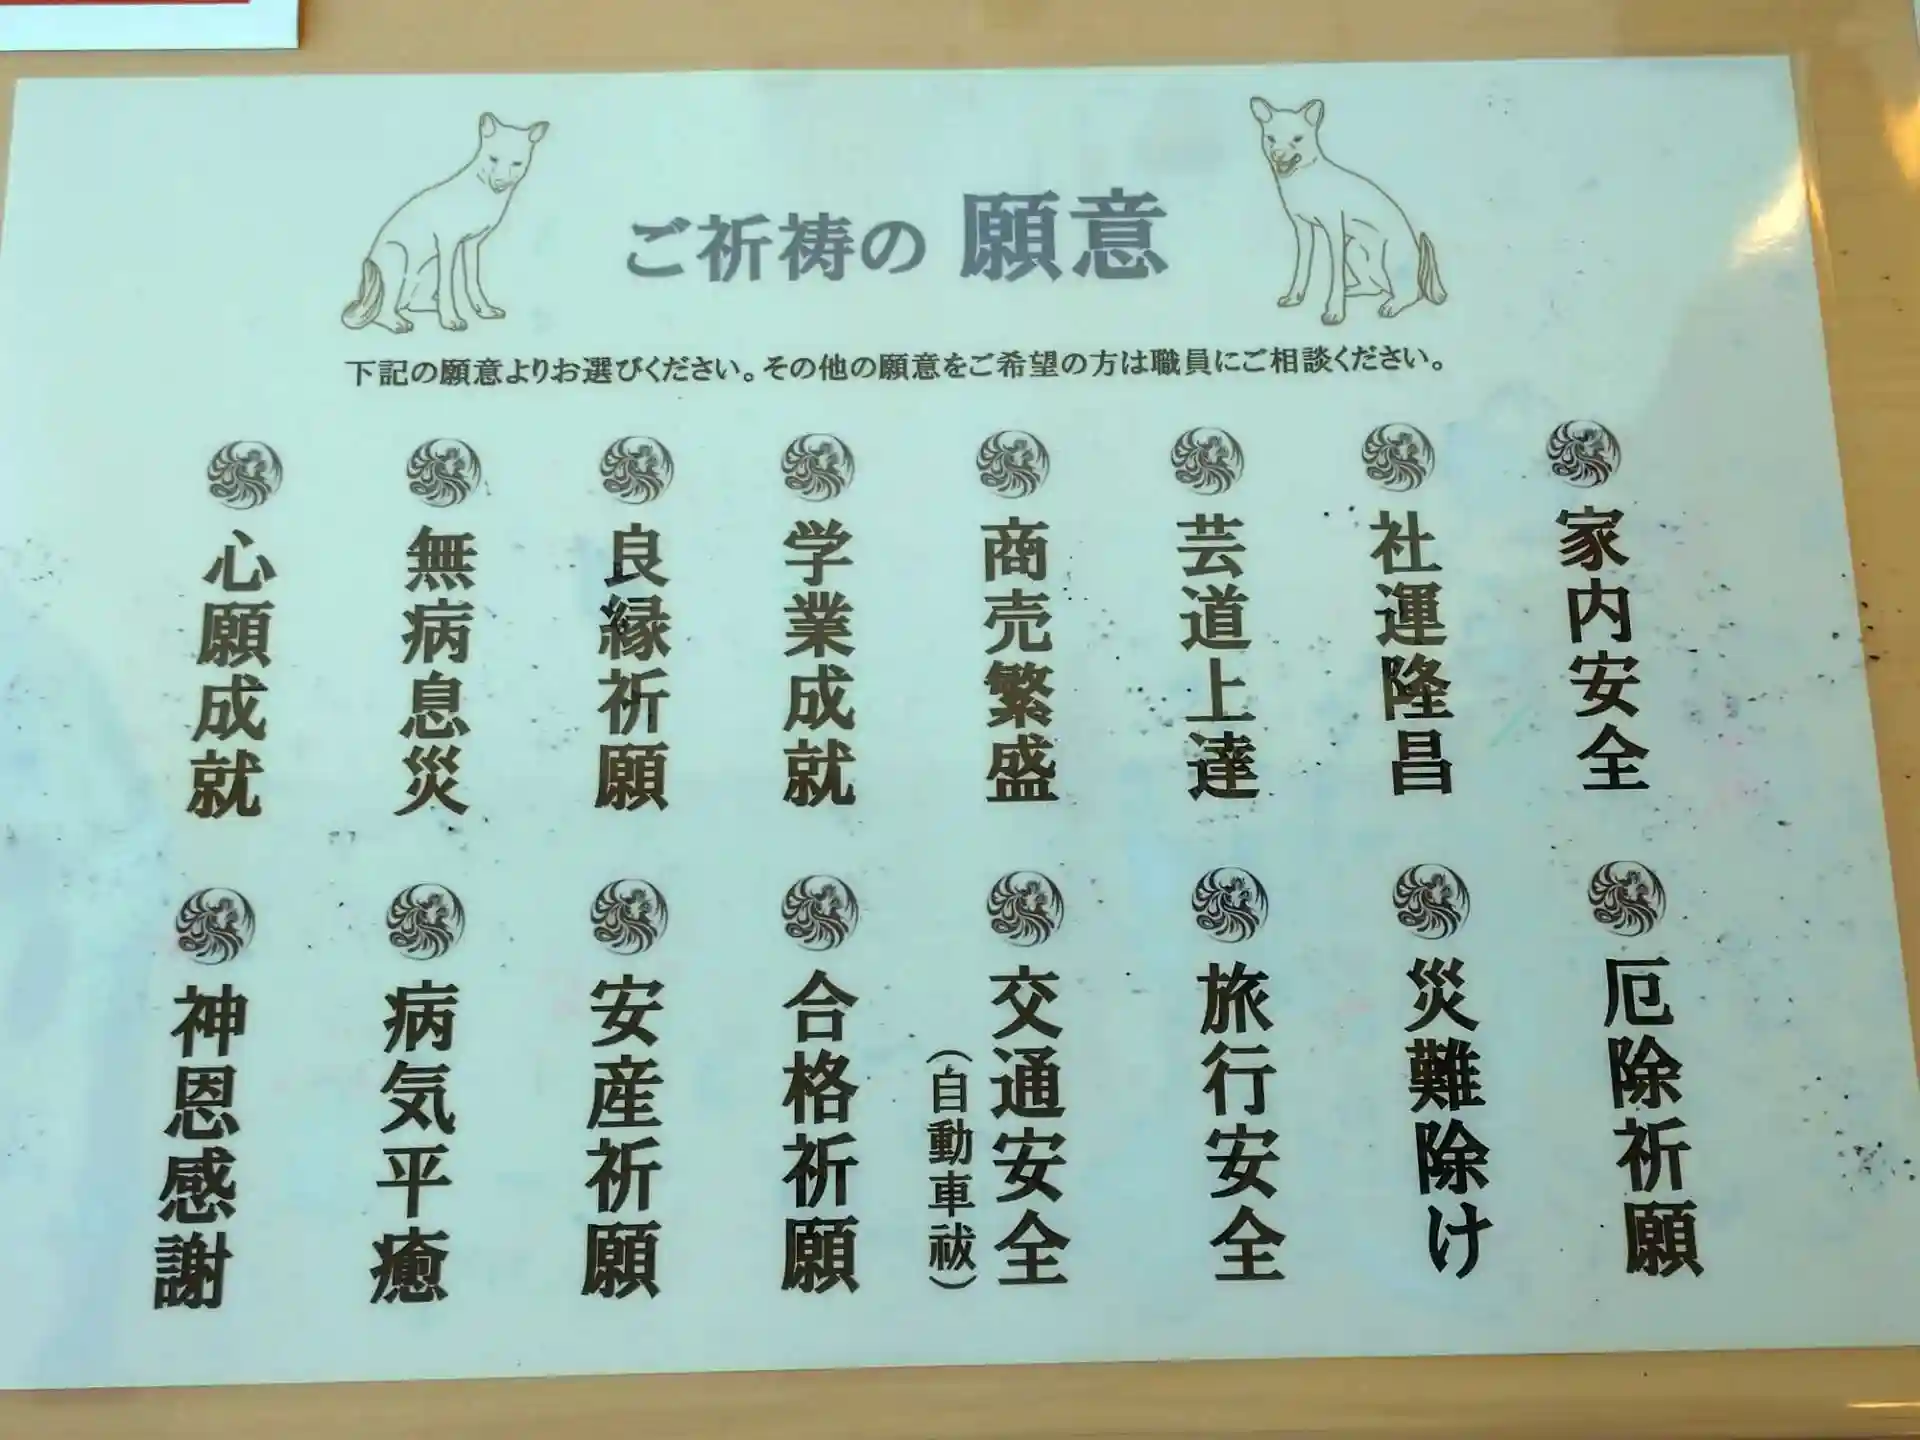 ご祈祷の 願意
下記の願意よりお選びください。その他の願意をご希望の方は職員にご相談ください。
家内安全
社運隆昌
芸道上達
商売繁盛
学業成就
良縁祈願
無病息災
心願成就
厄除祈願
災難除け
旅行安全
交通安全
（自動車祓）
合格祈願
安産祈願
病気平癒
神恩感謝